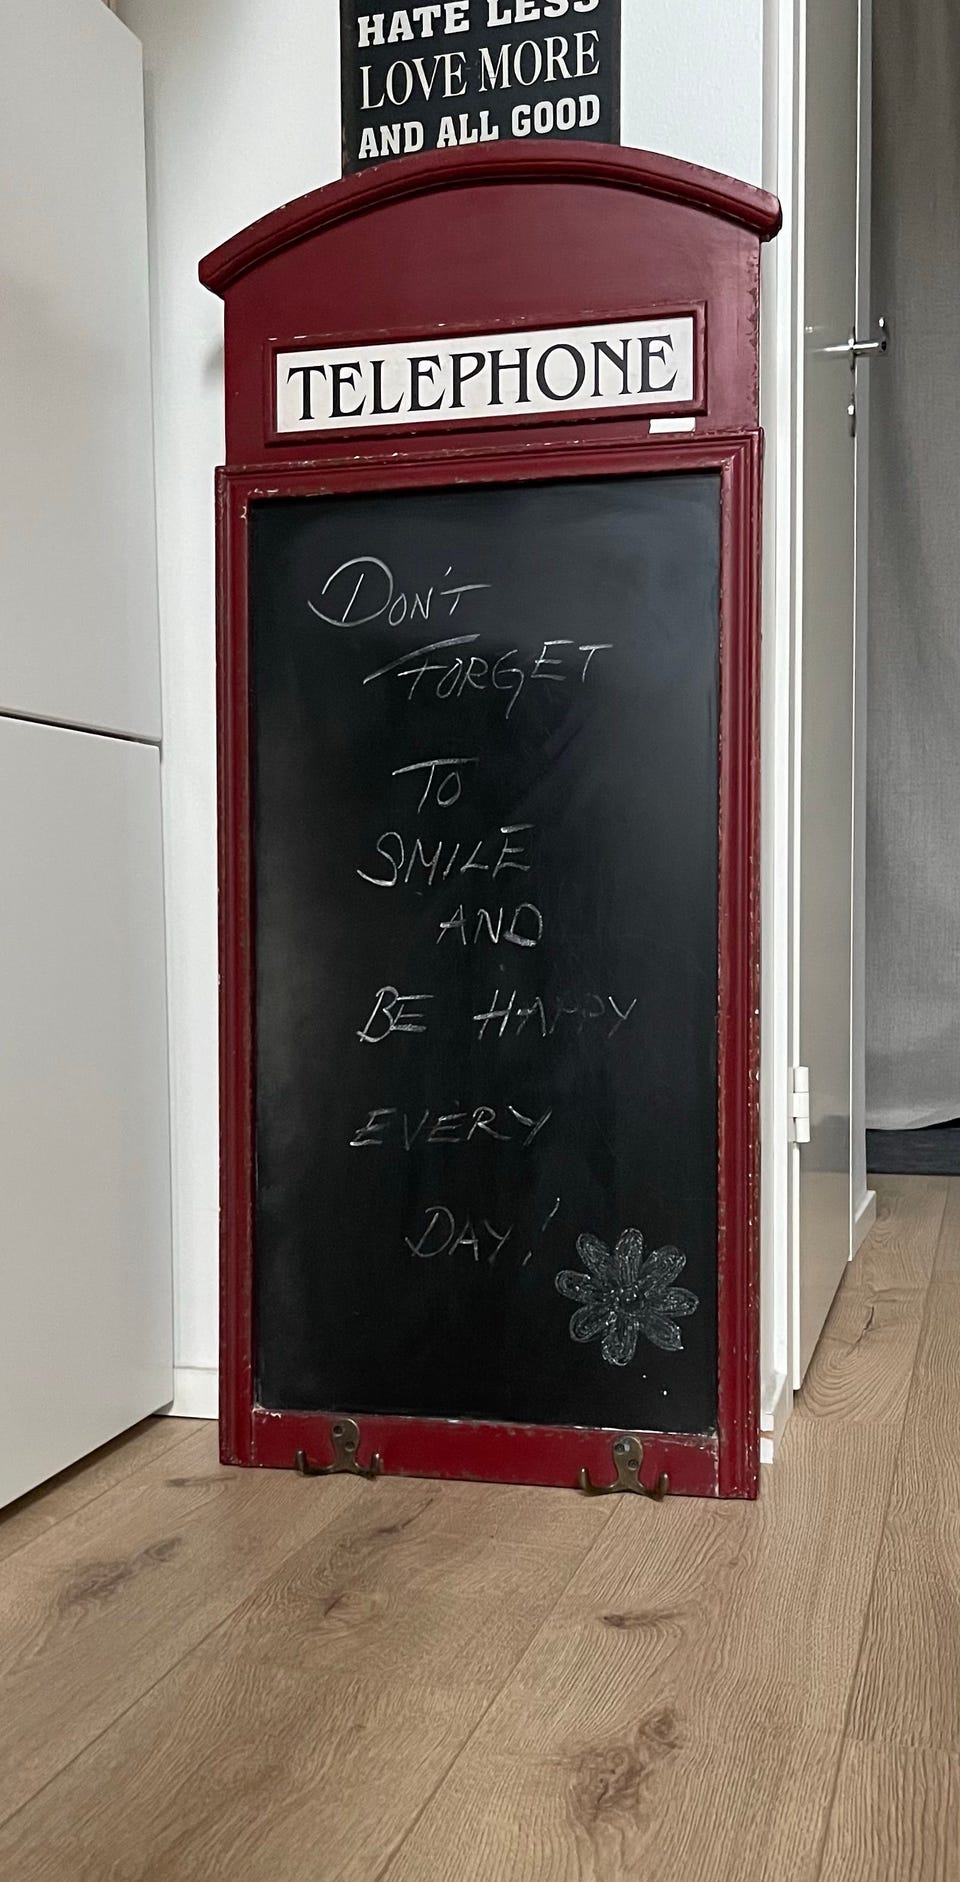 HATE LESS
LOVE MORE
AND ALL GOOD
TELEPHONE
DON'T
FORGET
TO
SMILE
AND
BE HAPPY
EVERY
DAY!